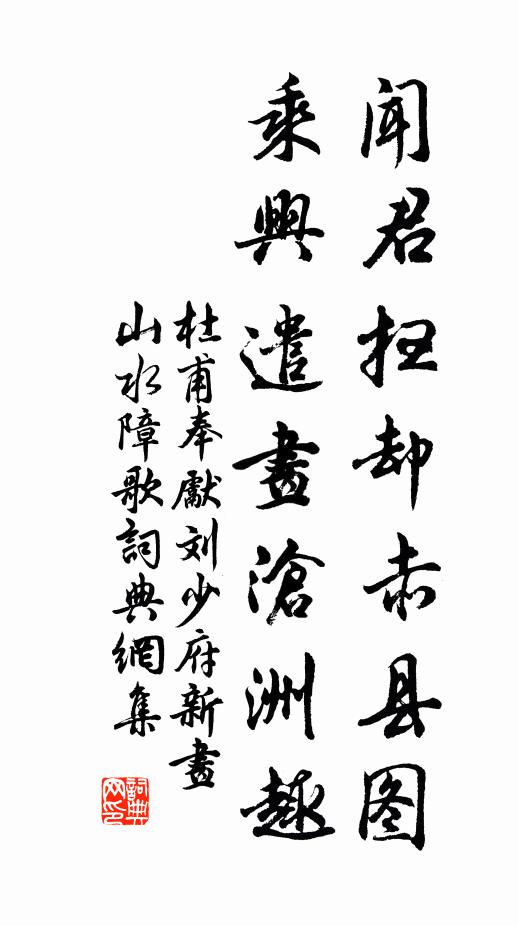 闻君扫却赤县图
乘興遣畫滄洲趣
杜甫奉獻刘少府新畫
山水障歌詞典網集
詞典
网印